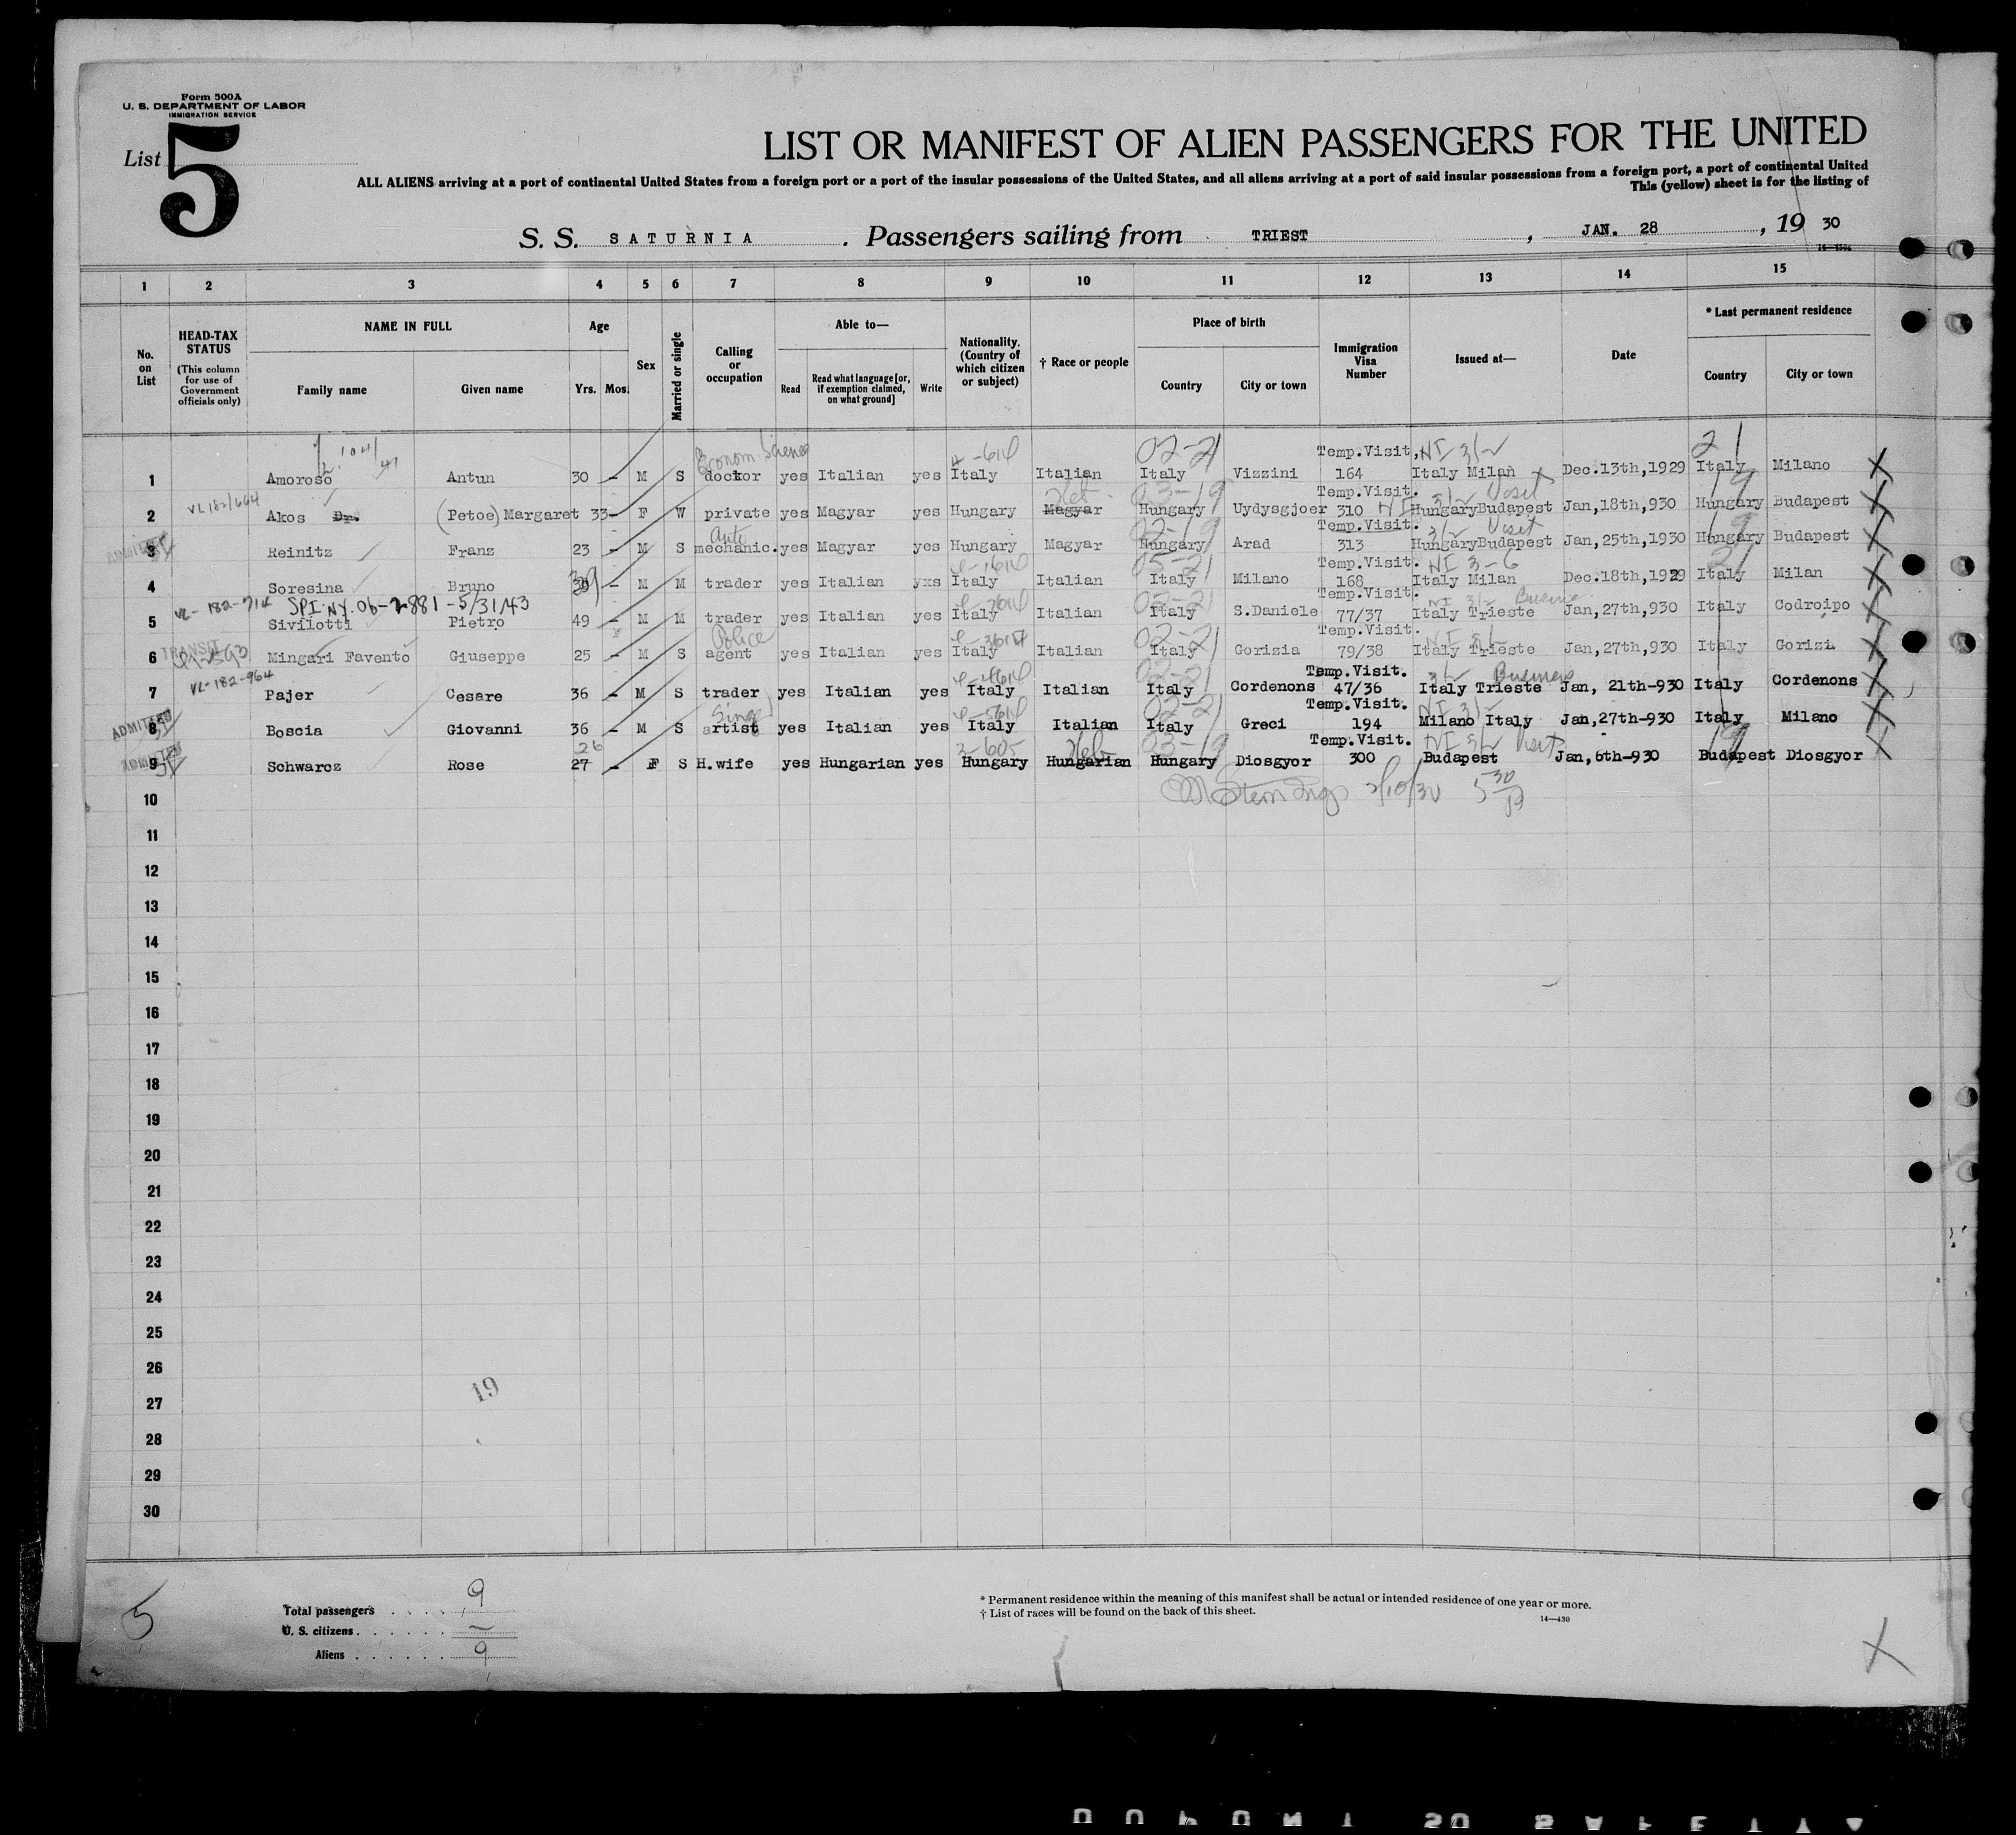 Form 500A
U. S. DEPARTMENT OF LABOR
IMMIGRATION SERVICE
List 5
LIST OR MANIFEST OF ALIEN PASSENGERS FOR THE UNITED
ALL ALIENS arriving at a port of continental United States from a foreign port or a port of the insular possessions of the United States, and all aliens arriving at a port of said insular possessions from a foreign port, a port of continental United
This (yellow) sheet is for the listing of
S. S. SATURNIA. Passengers sailing from TRIEST, JAN. 28, 19 30
1 2 3 4 5 6 7 8 9 10 11 12 13 14 15
No. on List
HEAD-TAX STATUS (This column for use of Government officials only)
NAME IN FULL Family name Given name
Age Yrs. Mos.
Sex
Married or single
Calling or occupation
Able to— Read Read what language [or, if exemption claimed, on what ground] Write
Nationality. (Country of which citizen or subject)
† Race or people
Place of birth Country City or town
Immigration Visa Number
Issued at—
Date
* Last permanent residence Country City or town
Econom. Science 02-21 Temp.Visit, NI 3/2 21
1 Amoroso Antun 30 - M S docktor yes Italian yes Italy Italian Italy Vizzini 164 Italy Milan Dec.13th,1929 Italy Milano X
VL182/664 Heb. 03-19 Temp.Visit. 3/2 Visit 19
2 Akos Dr. (Petoe) Margaret 33- F W private yes Magyar yes Hungary Magyar Hungary Uydysgjoer 310 NI Hungary Budapest Jan,18th,930 Hungary Budapest X
ADMITTED Auto 02-19 Temp.Visit. 3/2 Visit 19
3 Reinitz Franz 23 - M S mechanic. yes Magyar yes Hungary Magyar Hungary Arad 313 Hungary Budapest Jan,25th,1930 Hungary Budapest X
05-21 Temp.Visit. NI 3-6 21
4 Soresina Bruno 39 - M M trader yes Italian yxs Italy Italian Italy Milano 168 Italy Milan Dec.18th,1929 Italy Milan X
VL-182-714 SPI NY. 06-2881-5/31/43 02-21 Temp.Visit. NI 3/2 Business
5 Sivilotti Pietro 49 - M M trader yes Italian yes Italy Italian Italy S.Daniele 77/37 Italy Trieste Jan,27th,930 Italy Codroipo X
TRANSIT Police 02-21 Temp.Visit.
6 Mingari Favento Giuseppe 25 - M S agent yes Italian yes Italy Italian Italy Gorizia 79/38 Italy Trieste Jan,27th,930 Italy Gorizia X
VL-182-964 02-21 Temp.Visit. 3/2 Business
7 Pajer Cesare 36 - M S trader yes Italian yes Italy Italian Italy Cordenons 47/36 Italy Trieste Jan, 21th-930 Italy Cordenons X
ADMITTED Singer 02-21 Temp.Visit. NI 3/2
8 Boscia Giovanni 36 - M S artist yes Italian yes Italy Italian Italy Greci 194 Milano Italy Jan,27th-930 Italy Milano X
ADMITTED 26 3-605 Heb 03-19 Temp.Visit. NI 3/2 Visit 19
9 Schwarcz Rose 27 - F S H.wife yes Hungarian yes Hungary Hungarian Hungary Diosgyor 300 Budapest Jan,6th-930 Budapest Diosgyor X
10 2/10/30 5 30
11
12
13
14
15
16
17
18
19
20
21
22
23
24
25
26
27 19
28
29
30
5
Total passengers . . . . 9
U. S. citizens . . . . . . –
Aliens . . . . . . 9
* Permanent residence within the meaning of this manifest shall be actual or intended residence of one year or more.
† List of races will be found on the back of this sheet.
14—430
X